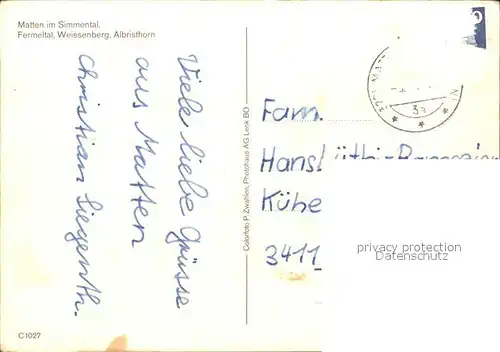 Matten im Simmental,
Fermeltal, Weissenberg, Albristhorn
Viele liebe Grüsse
aus Matten
Christian Siegenth.
Colorfoto P. Zwahlen, Photohaus AG Lenk BO
Fam.
Kühe
3411
privacy protection
Datenschutz
3a
C1027